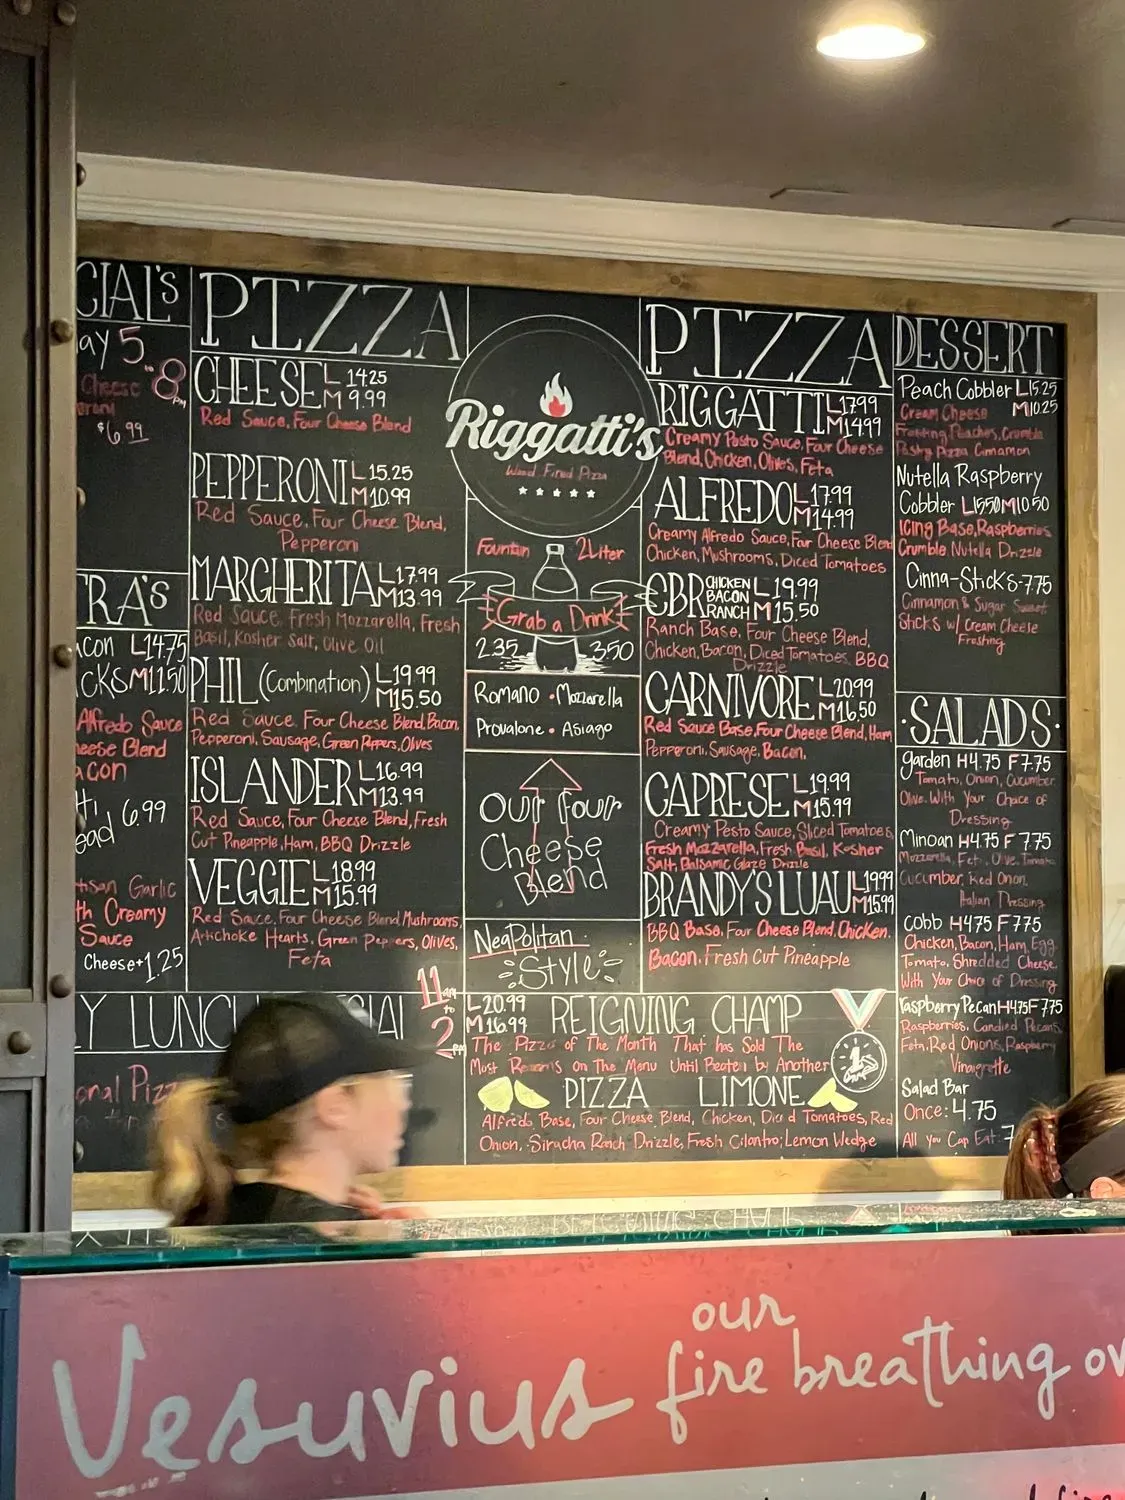 CIAL'S
ay 5
Cheese 8PM
$6.99
TRA'S
con L14.75
CKS M11.50
Alfredo Sauce
eese Blend
acon
6.99
ead
san Garlic
th Creamy
Sauce
Cheese+1.25
PIZZA
CHEESE L 14.25
M 9.99
Red Sauce, Four Cheese Blend
PEPPERONI L 15.25
M 10.99
Red Sauce, Four Cheese Blend,
Pepperoni
MARGHERITA L 17.99
M 13.99
Red Sauce, Fresh Mozzarella, Fresh
Basil, Kosher Salt, Olive Oil
PHIL (Combination) L 19.99
M 15.50
Red Sauce, Four Cheese Blend, Bacon,
Pepperoni, Sausage, Green Peppers, Olives
ISLANDER L 16.99
M 13.99
Red Sauce, Four Cheese Blend, Fresh
Cut Pineapple, Ham, BBQ Drizzle
VEGGIE L 18.99
M 15.99
Red Sauce, Four Cheese Blend, Mushrooms,
Artichoke Hearts, Green Peppers, Olives,
Feta
Y LUNC
11AM
to
2PM
onal Pizz
Riggatti's
Wood Fired Pizza
Fountain 2 Liter
Grab a Drink!
2.35 3.50
Romano • Mozzarella
Provalone • Asiago
Our Four
Cheese
Blend
Neapolitan
Style
PIZZA
RIGGATTI L 17.99
M 14.99
Creamy Pesto Sauce, Four Cheese
Blend, Chicken, Olives, Feta
ALFREDO L 17.99
M 14.99
Creamy Alfredo Sauce, Four Cheese Blend
Chicken, Mushrooms, Diced Tomatoes
CBR CHICKEN BACON RANCH L 19.99
M 15.50
Ranch Base, Four Cheese Blend,
Chicken, Bacon, Diced Tomatoes, BBQ
Drizzle
CARNIVORE L 20.99
M 16.50
Red Sauce Base, Four Cheese Blend, Ham
Pepperoni, Sausage, Bacon,
CAPRESE L 19.99
M 15.99
Creamy Pesto Sauce, Sliced Tomatoes,
Fresh Mozzarella, Fresh Basil, Kosher
Salt, Balsamic Glaze Drizzle
BRANDY'S LUAU L 19.99
M 15.99
BBQ Base, Four Cheese Blend, Chicken,
Bacon, Fresh Cut Pineapple
L 20.99
M 16.99
REIGNING CHAMP
The Pizza of The Month That has Sold The
Most Remains On The Menu Until Beaten by Another
PIZZA LIMONE
Alfredo Base, Four Cheese Blend, Chicken, Diced Tomatoes, Red
Onion, Siracha Ranch Drizzle, Fresh Cilantro, Lemon Wedge
DESSERT
Peach Cobbler L 15.25
M 10.25
Cream Cheese
Frosting, Peaches, Crumble
Pastry Pizza, Cinnamon
Nutella Raspberry
Cobbler L 15.50 M 10.50
Icing Base, Raspberries
Crumble Nutella Drizzle
Cinna-Sticks-7.75
Cinnamon & Sugar Sweet
Sticks w/ Cream Cheese
Frosting
·SALADS·
Garden H4.75 F7.75
Tomato, Onion, Cucumber
Olive. With Your Choice of
Dressing
Minoan H4.75 F 7.75
Mozzarella, Feta, Olive, Tomato
Cucumber, Red Onion,
Italian Dressing
Cobb H4.75 F7.75
Chicken, Bacon, Ham, Egg
Tomato, Shredded Cheese,
With Your Choice of Dressing
Raspberry Pecan H4.75 F7.75
Raspberries, Candied Pecans,
Feta, Red Onions, Raspberry
Vinaigrette
Salad Bar
Once: 4.75
All you Can Eat: 7
Vesuvius our
fire breathing ov